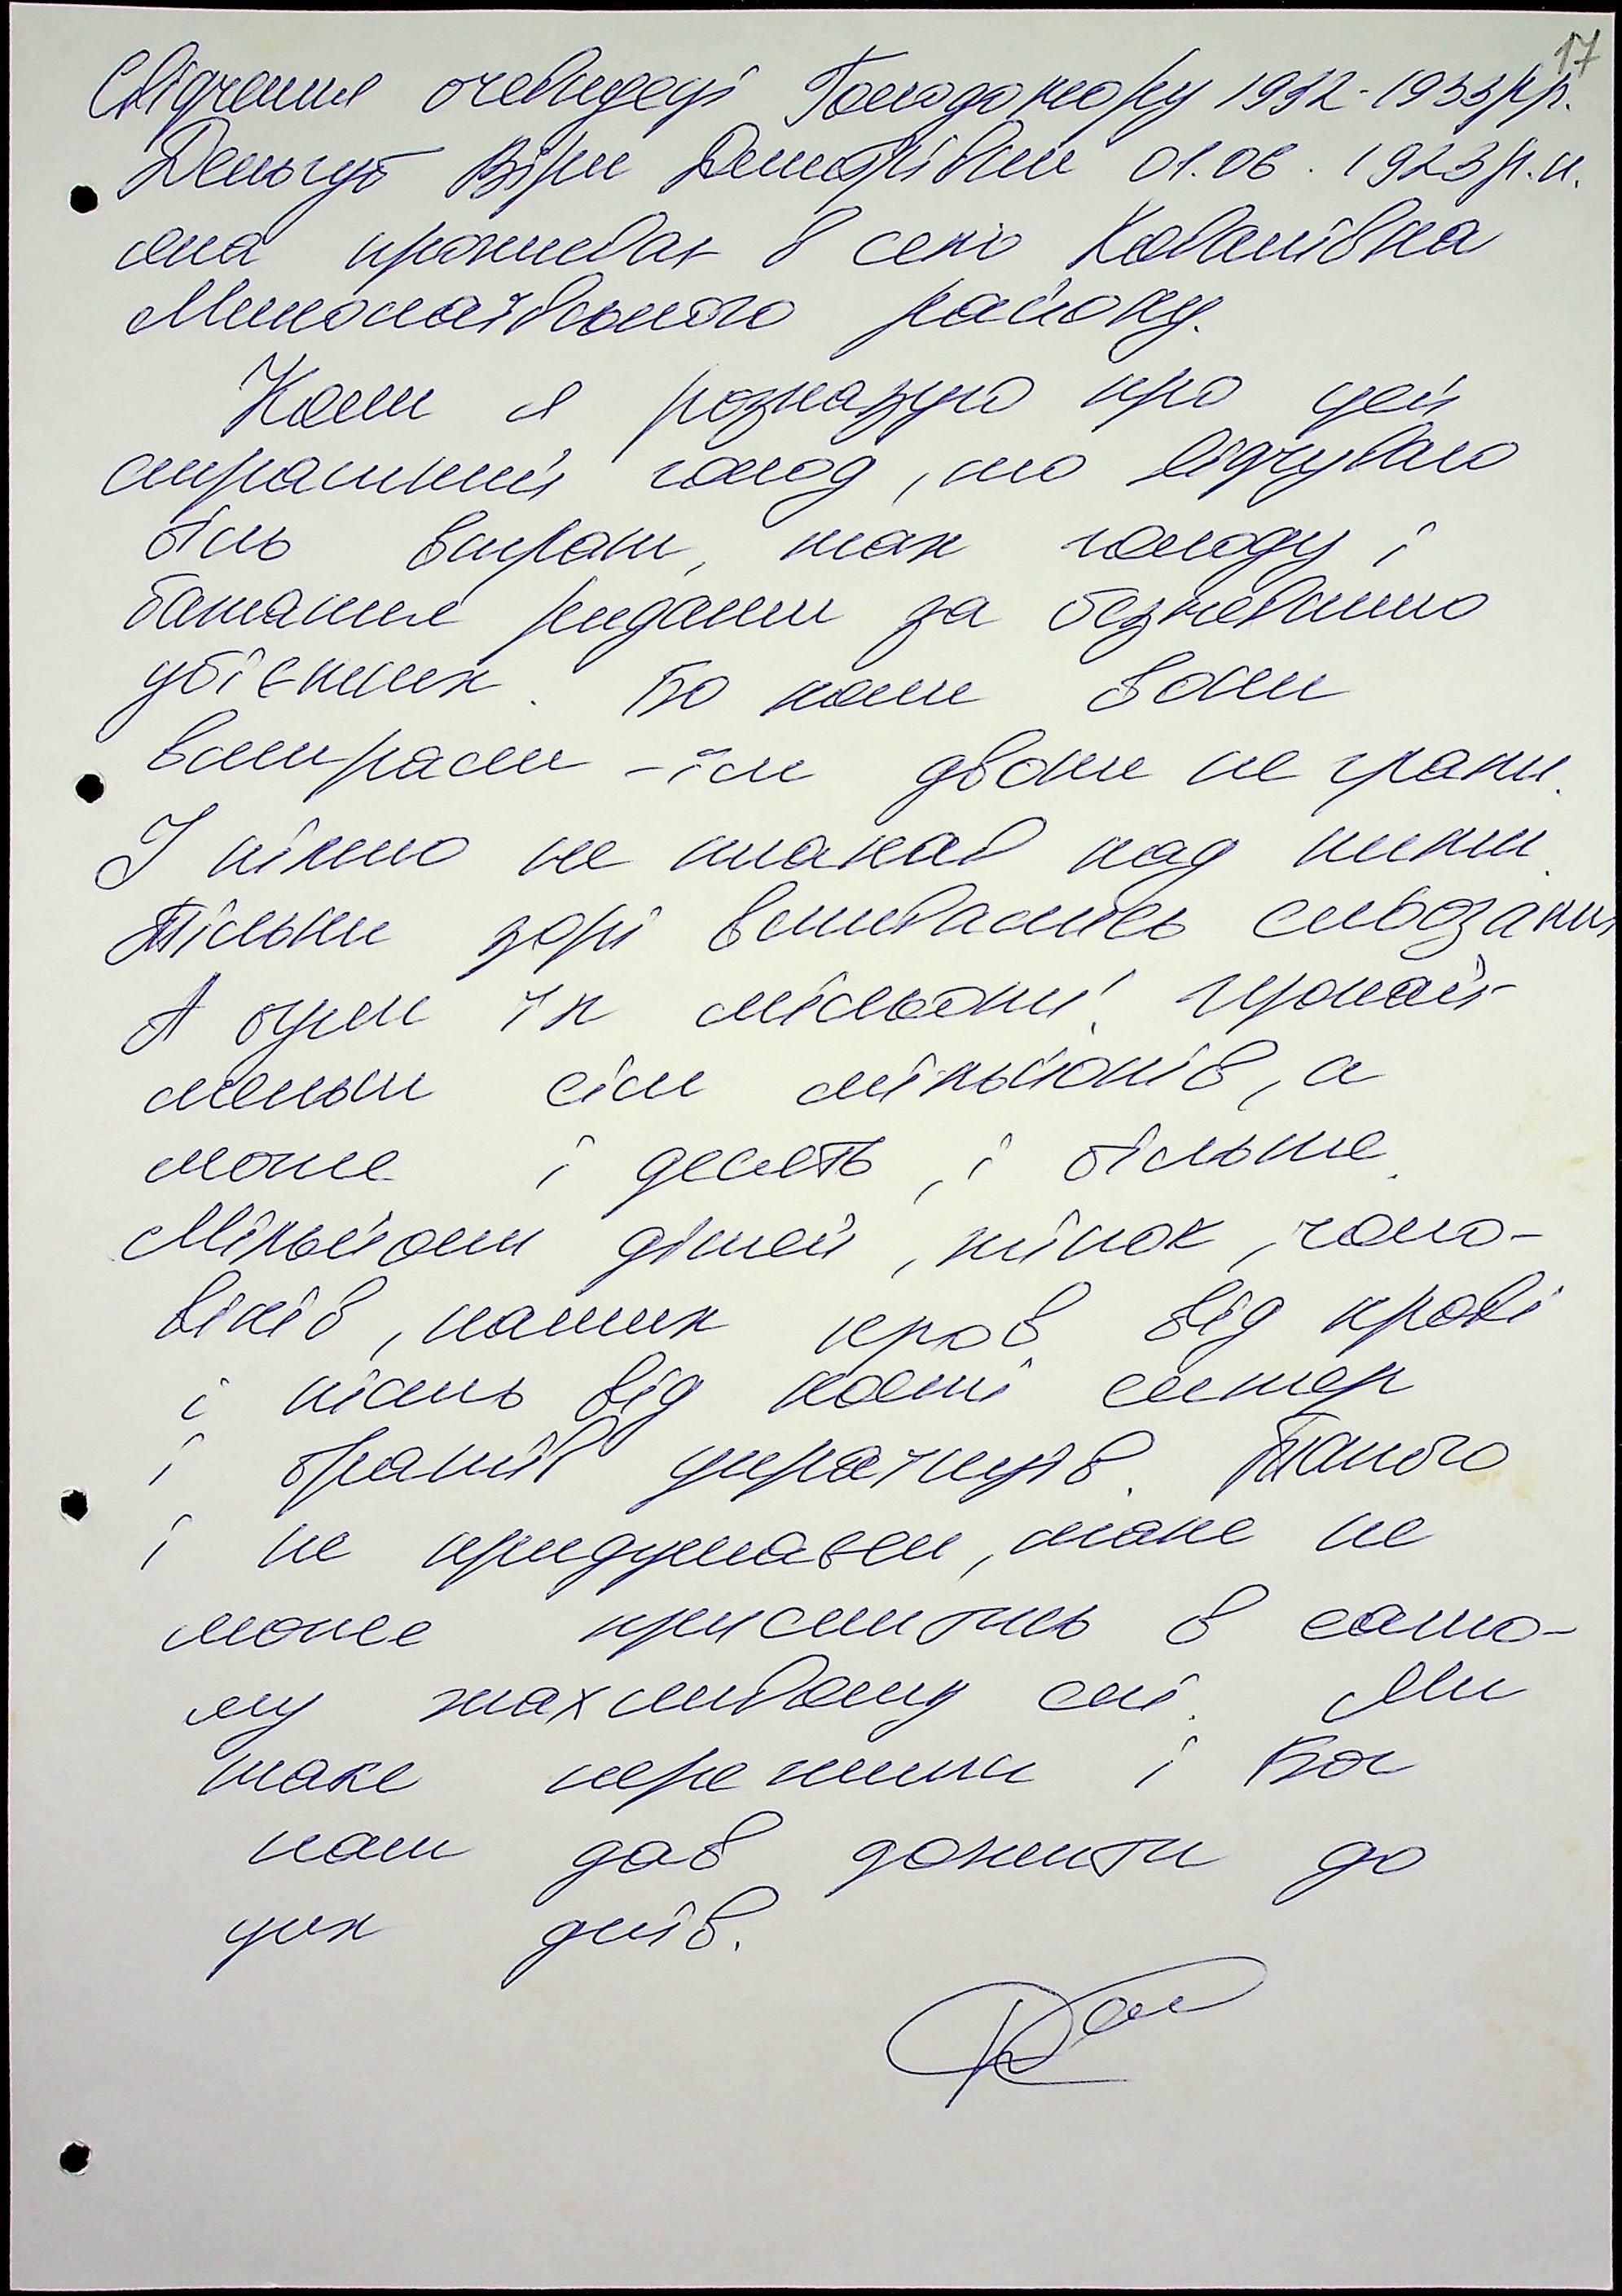 17
Свідчення очевидеці Голодомору 1932-1933рр.
Деньгуб Віри Дмитрівни 01.06.1923р.н.
яка проживає в селі Ковалівка
Миколаївського району.
Коли я розказую про цей
страшний голод, то відчуваю
біль втрати, так голоду і
бажання ридати за безневинно
убієнних. Бо коли вони
вмирали - їм дзвони не грали.
І ніхто не плакав над ними.
Тільки зорі вмивались сльозами
А були їх мільони! Щонай-
менше сім мільйонів, а
може і десять, і більше.
Мільйони дітей, жінок, чоло-
віків, наших кров від крові
і кість від кості сестер
і братів українців. Такого
і не придумаєш, таке не
може приснитись в само-
му жахливому сні. Ми
таке пережили і Бог
нам дав дожити до
цих днів.